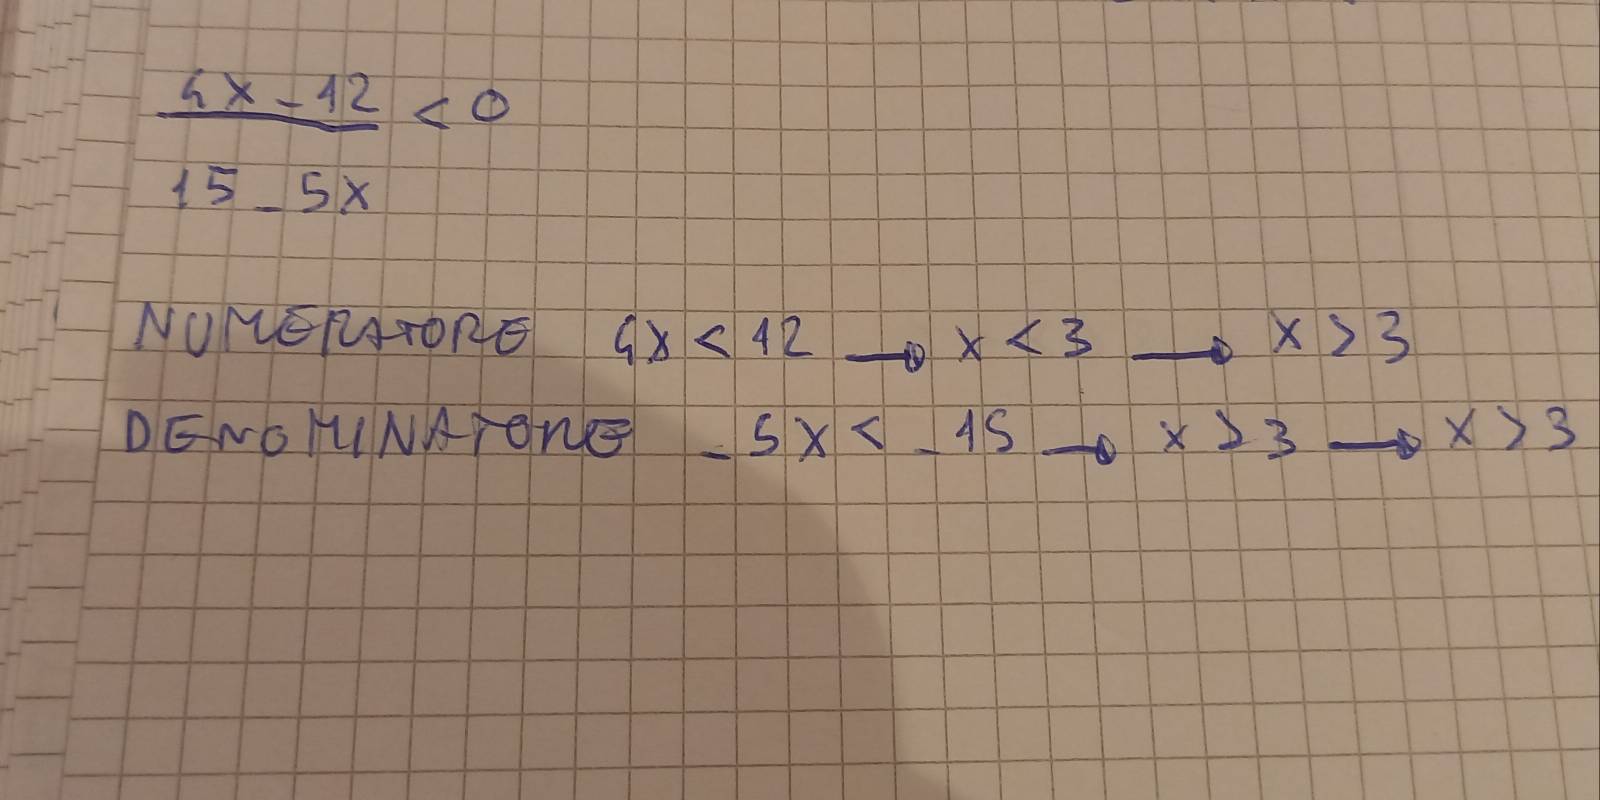 4x - 12 < 0
15 - 5x
NUMERATORE 4x < 12 → x < 3 → x > 3
DENOMINATORE - 5x < - 15 → x > 3 → x > 3